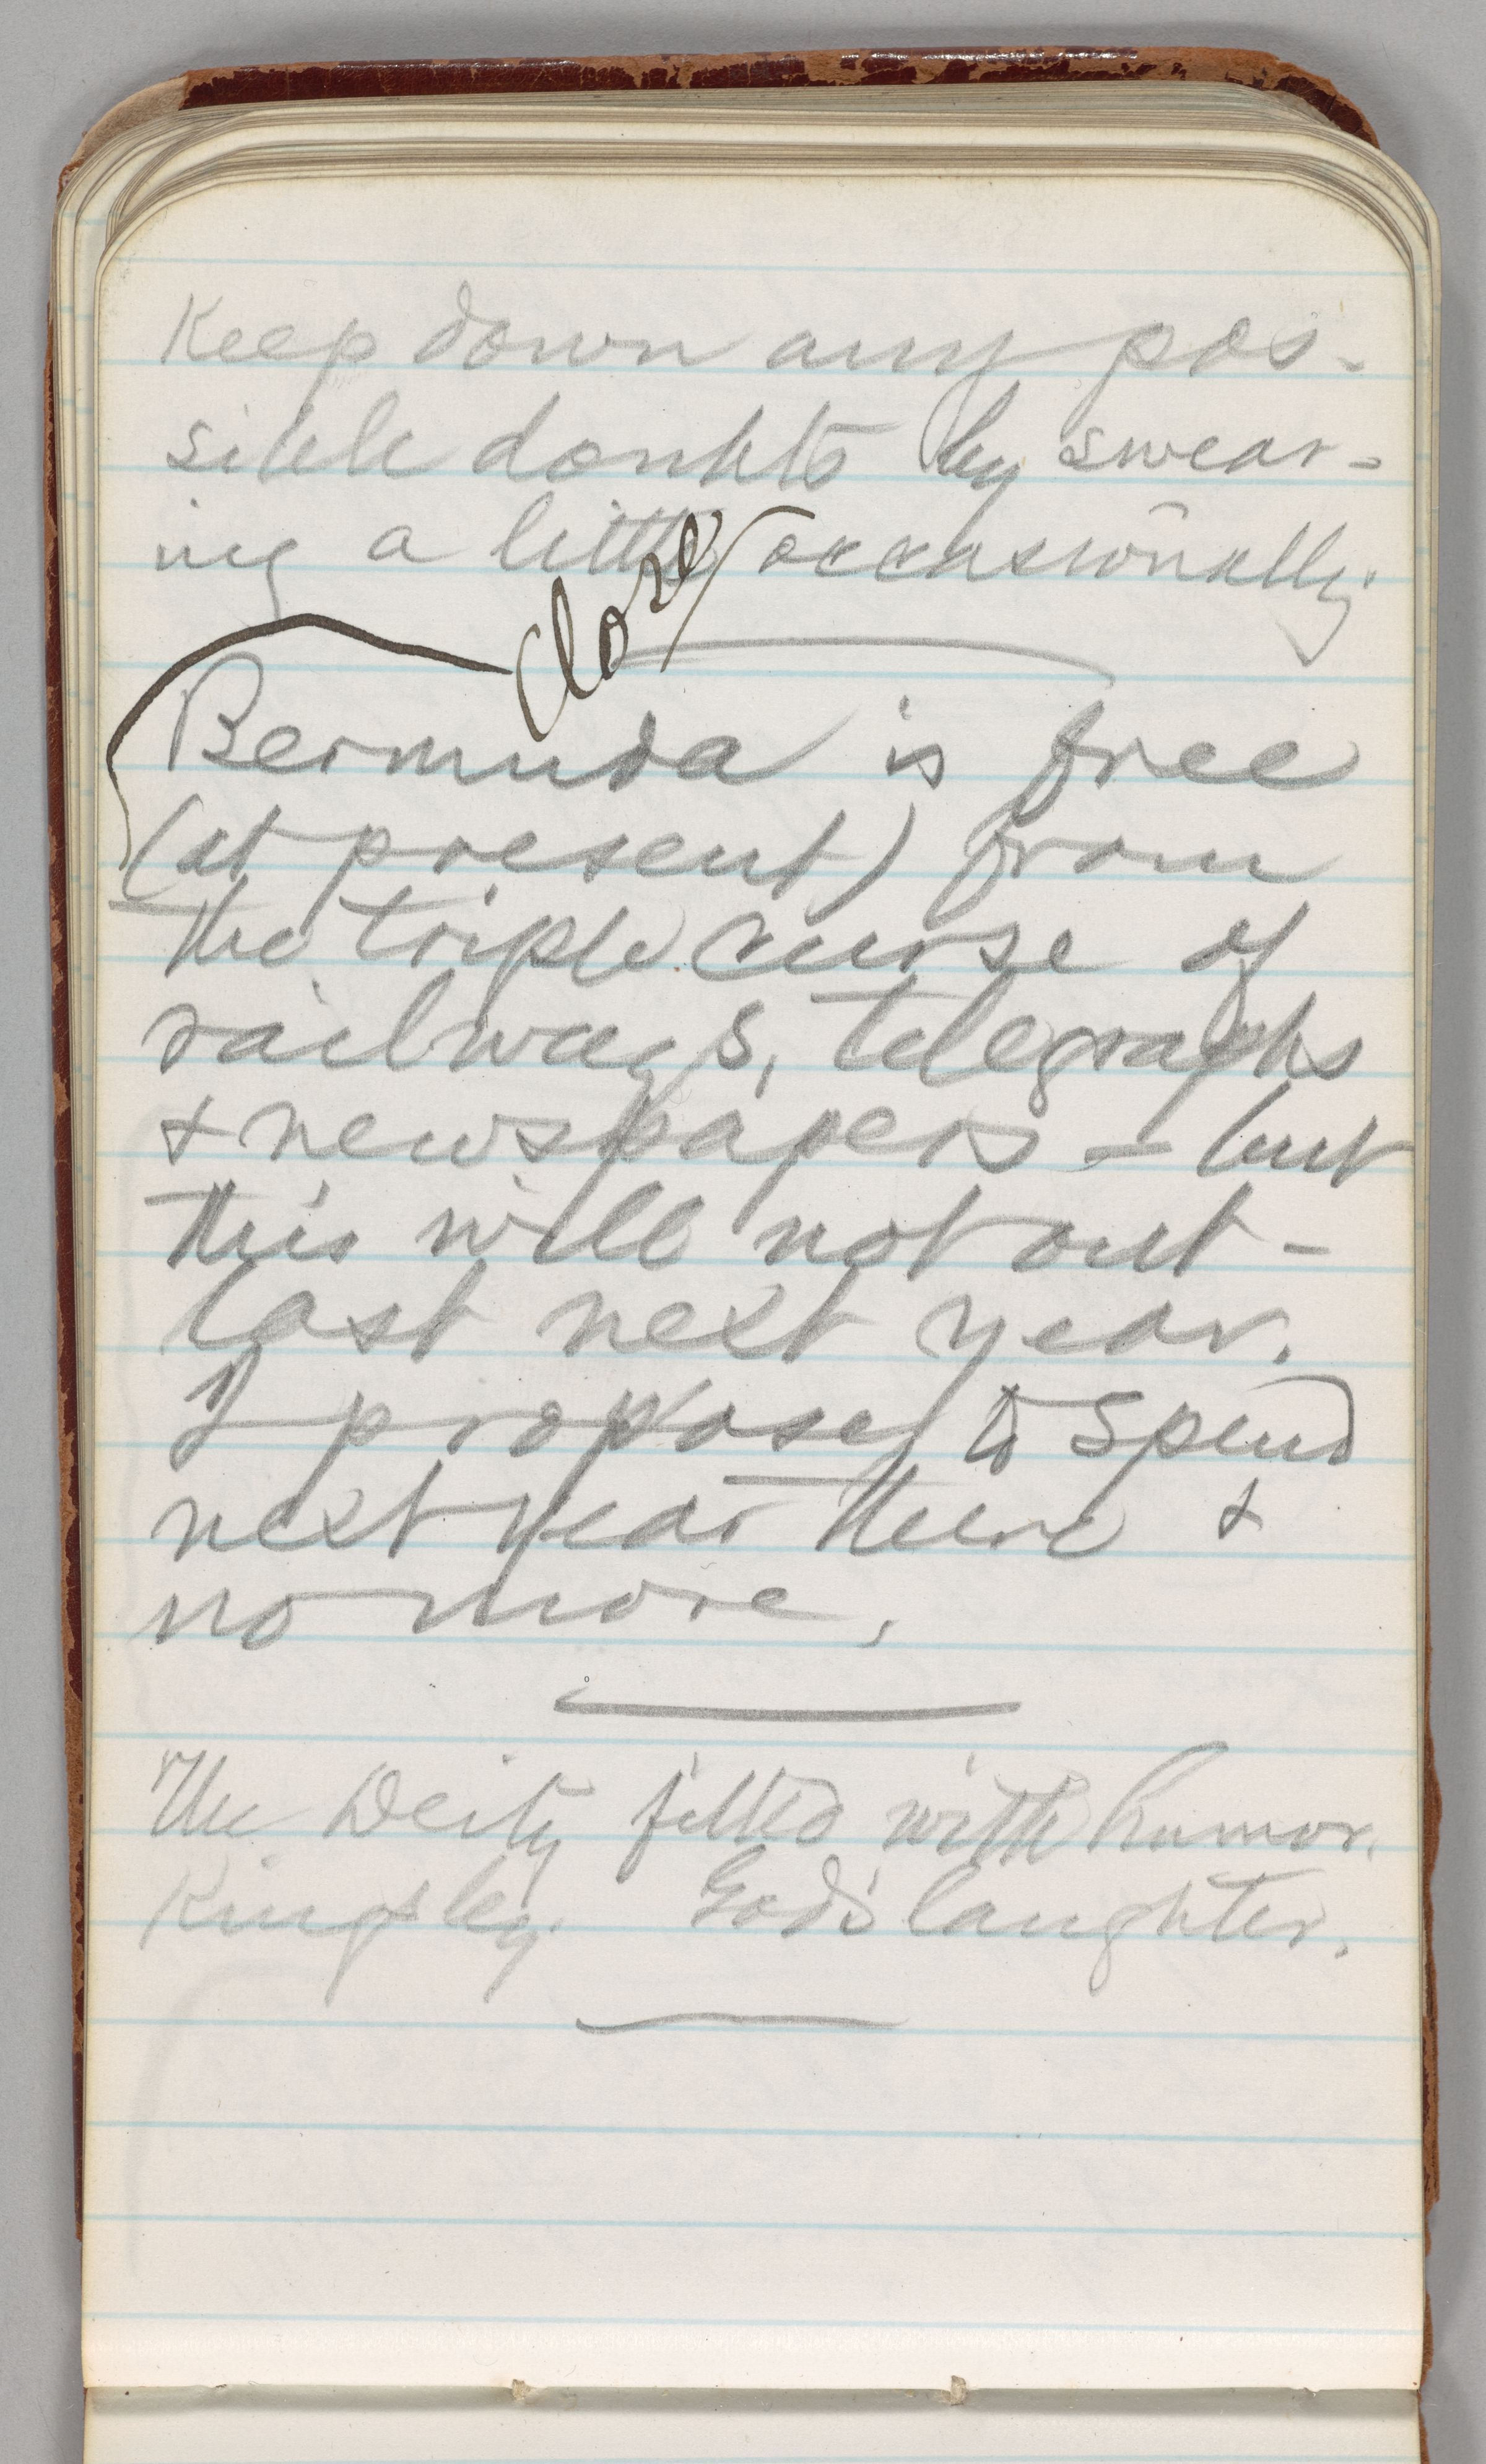 Keep down any pos-
sible doubts by swear-
ing a little occasionally.
Close
Bermuda is free
(at present) from
the triple curse of
railways, telegraphs
& newspapers – but
this will not out-
last next year.
I propose to spend
next year there &
no more.
The Deity filled with humor.
Kingsley. God's laughter.